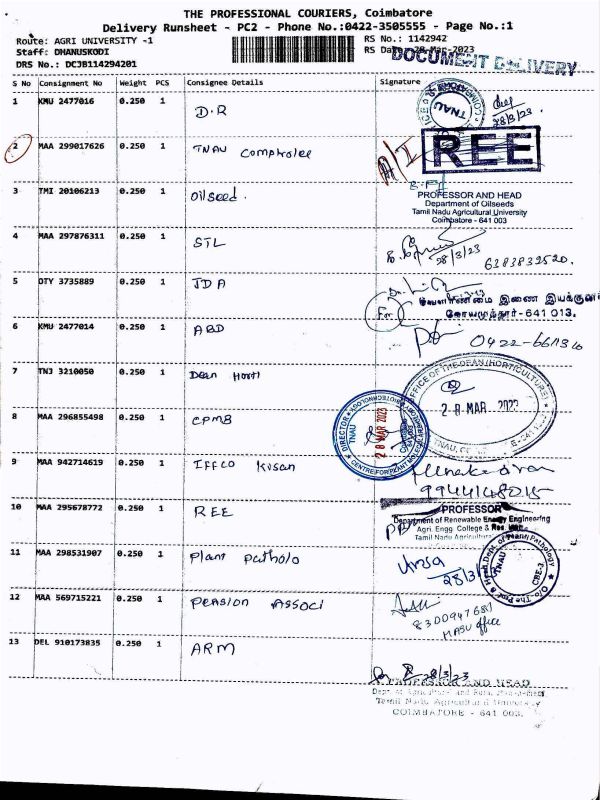 THE PROFESSIONAL COURIERS, Coimbatore
Delivery Runsheet - PC2 - Phone No.:0422-3505555 - Page No.:1
Route: AGRI UNIVERSITY -1
Staff: DHANUSKODI
DRS No.: DCJB114294201
RS No.: 1142942
RS Date: 28-Mar-2023
DOCUMENT DELIVERY
S No Consignment No Weight PCS Consignee Details Signature
1 KMU 2477016 0.250 1 D.R
TNAU
28/3/23.
2 MAA 299017626 0.250 1 TNAU Comptroller
REE
3 TMI 20106213 0.250 1 Oilseed.
PROFESSOR AND HEAD
Department of Oilseeds
Tamil Nadu Agricultural University
Coimbatore - 641 003
4 MAA 297876311 0.250 1 STL
28/3/23 6383832520.
5 DTY 3735889 0.250 1 JDA
For
வேளாண்மை இணை இயக்குனர்
கோயமுத்தூர்-641 013.
6 KMU 2477014 0.250 1 ABD
7 TNJ 3210050 0.250 1 Dean Horti
OFFICE OF THE DEAN (HORTICULTURE)
28 MAR 2023
8 MAA 296855498 0.250 1 CPMB
DIRECTOR
TNAU
28 MAR 2023
CENTRE FOR PLANT MOLECULAR BIOLOGY
9 MAA 942714619 0.250 1 IFFCO Kisan
10 MAA 295678772 0.250 1 REE
PROFESSOR
Department of Renewable Energy Engineering
Agri. Engg. College &
Tamil Nadu Agricultural
11 MAA 298531907 0.250 1 Plant Patholo
28/3/
Dept. of Plant Pathology
TNAU
CBE-3.
12 MAA 569715221 0.250 1 Pension Associ
MASU office
13 DEL 910173835 0.250 1 ARM
28/3/23
PROFESSOR AND HEAD
Dept. of Agricultural and Rural Management
Tamil Nadu Agricultural University
COIMBATORE - 641 003.